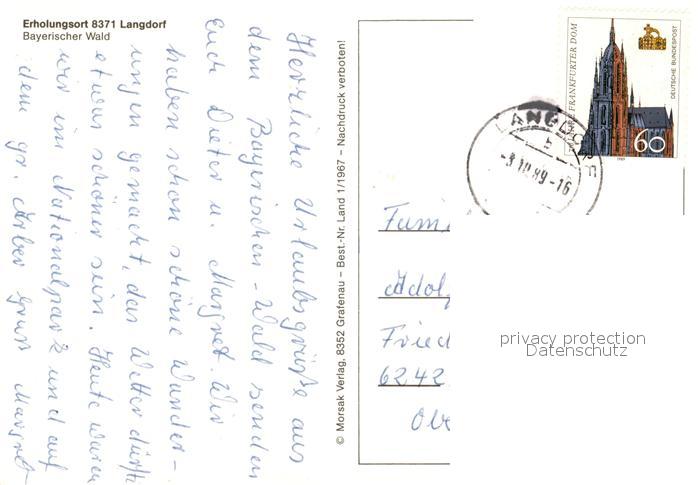 Erholungsort 8371 Langdorf
Bayerischer Wald
Herrliche Urlaubsgrüße aus
dem Bayrischen-Wald senden
Euch Dieter u. Margret. Wir
haben schon schöne Wander-
ungen gemacht, das Wetter dürfte
etwas schöner sein. Heute waren
wir im Nationalpark und auf
dem gr. Arber Gruß Margret
© Morsak Verlag, 8352 Grafenau – Best.-Nr. Land 1/1967 – Nachdruck verboten!
JAHRE FRANKFURTER DOM
DEUTSCHE BUNDESPOST
60
1989
LANGDORF
-3.10.89-16
Fami
Adol
Fried
6242
Obe
privacy protection
Datenschutz